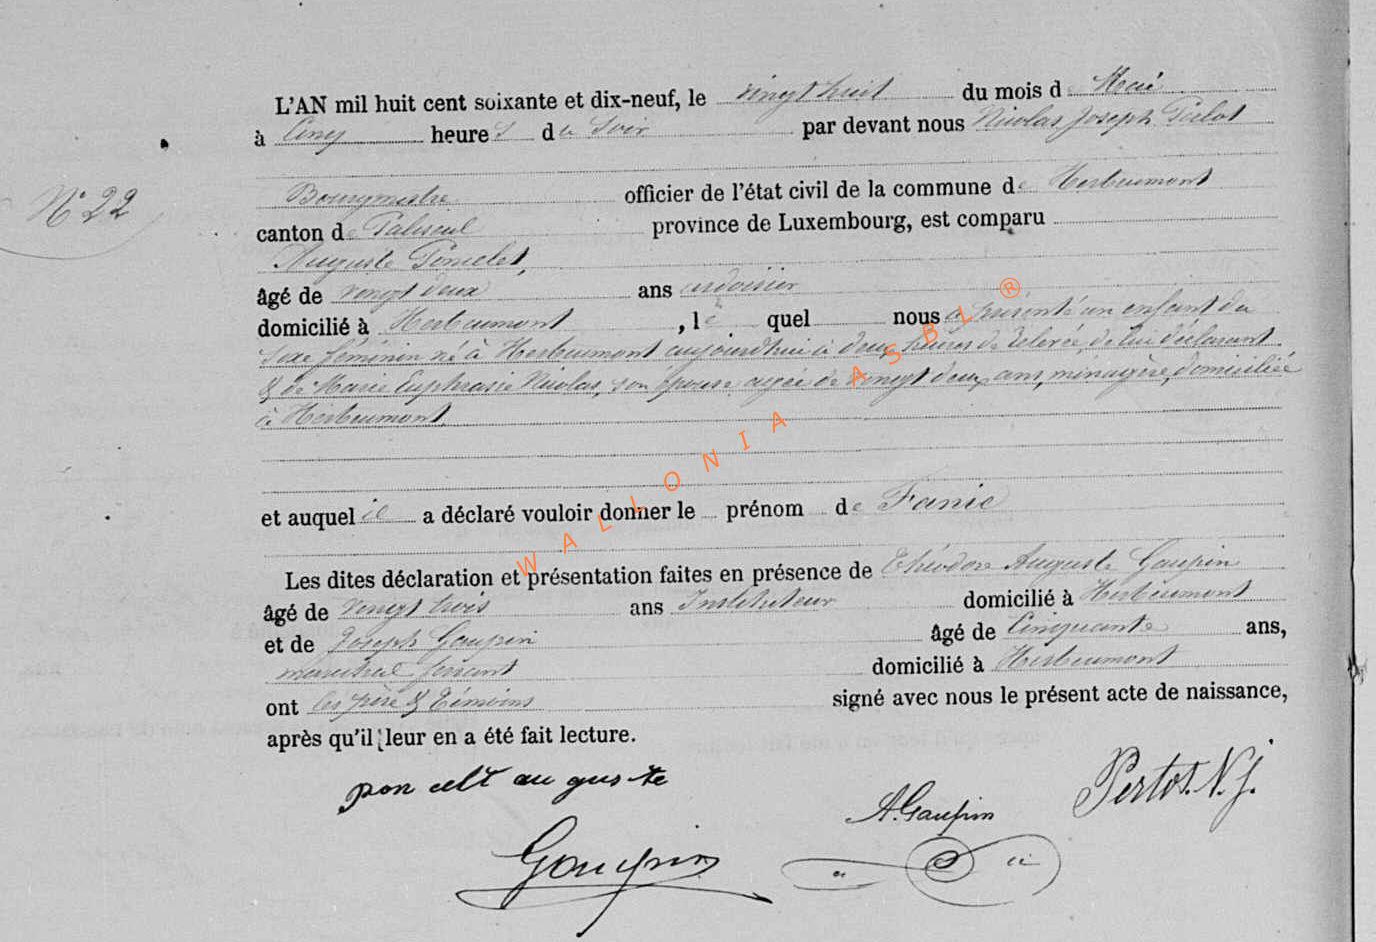 L'AN mil huit cent soixante et dix-neuf, le vingt huit du mois de Mai
à Cinq heures du Soir par devant nous Nicolas Joseph Pertot
N° 22
Bourgmestre officier de l'état civil de la commune de Herbeumont
canton de Paliseul province de Luxembourg, est comparu
Auguste Poncelet,
âgé de vingt deux ans ardoisier
domicilié à Herbeumont, le quel nous a présenté un enfant du
sexe féminin né à Herbeumont aujourd'hui à deux heures de relevée, de lui déclarant
& de Marie Euphrasie Nicolas, son épouse agée de vingt deux ans, ménagère, domiciliée
à Herbeumont.
et auquel il a déclaré vouloir donner le prénom de Fanie
Les dites déclaration et présentation faites en présence de Théodore Auguste Goupin
âgé de vingt trois ans Instituteur domicilié à Herbeumont
et de Joseph Goupin âgé de Cinquante ans,
marechal ferrant domicilié à Herbeumont
ont les père & témoins signé avec nous le présent acte de naissance,
après qu'il leur en a été fait lecture.
pon celt au gus te
A. Goupin
Pertot. N. J.
Goupin
WALLONIA ASBL ®